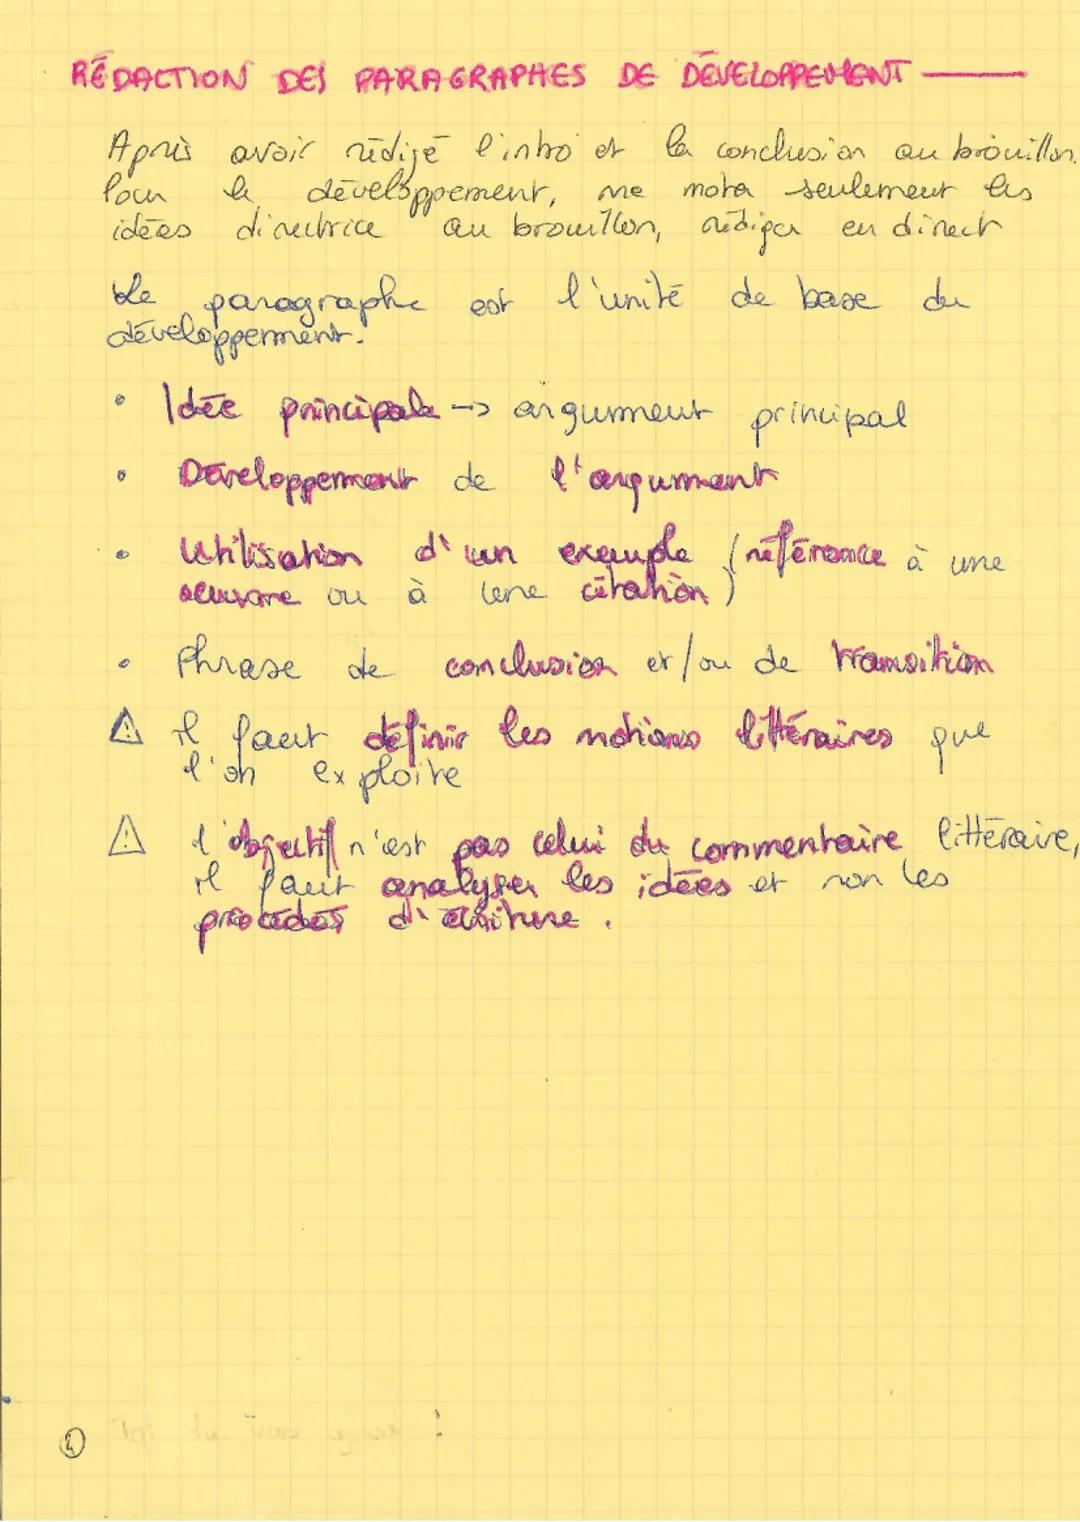 RÉDACTION DES PARAGRAPHES DE DÉVELOPPEMENT
Après avoir rédigé l'intro et la conclusion au brouillon.
Pour le développement, ne noter seulement les
idées directrice au brouillon, rédiger en direct
Le paragraphe est l'unité de base du
développement.
• Idée principale -> argument principal
• Développement de l'argument
• Utilisation d'un exemple (référence à une
oeuvre ou à une citation)
• Phrase de conclusion et/ou de transition
⚠ il faut définir les notions littéraires que
l'on exploite
⚠ l'objectif n'est pas celui du commentaire littéraire,
il faut analyser les idées et non les
procédés d'écriture.